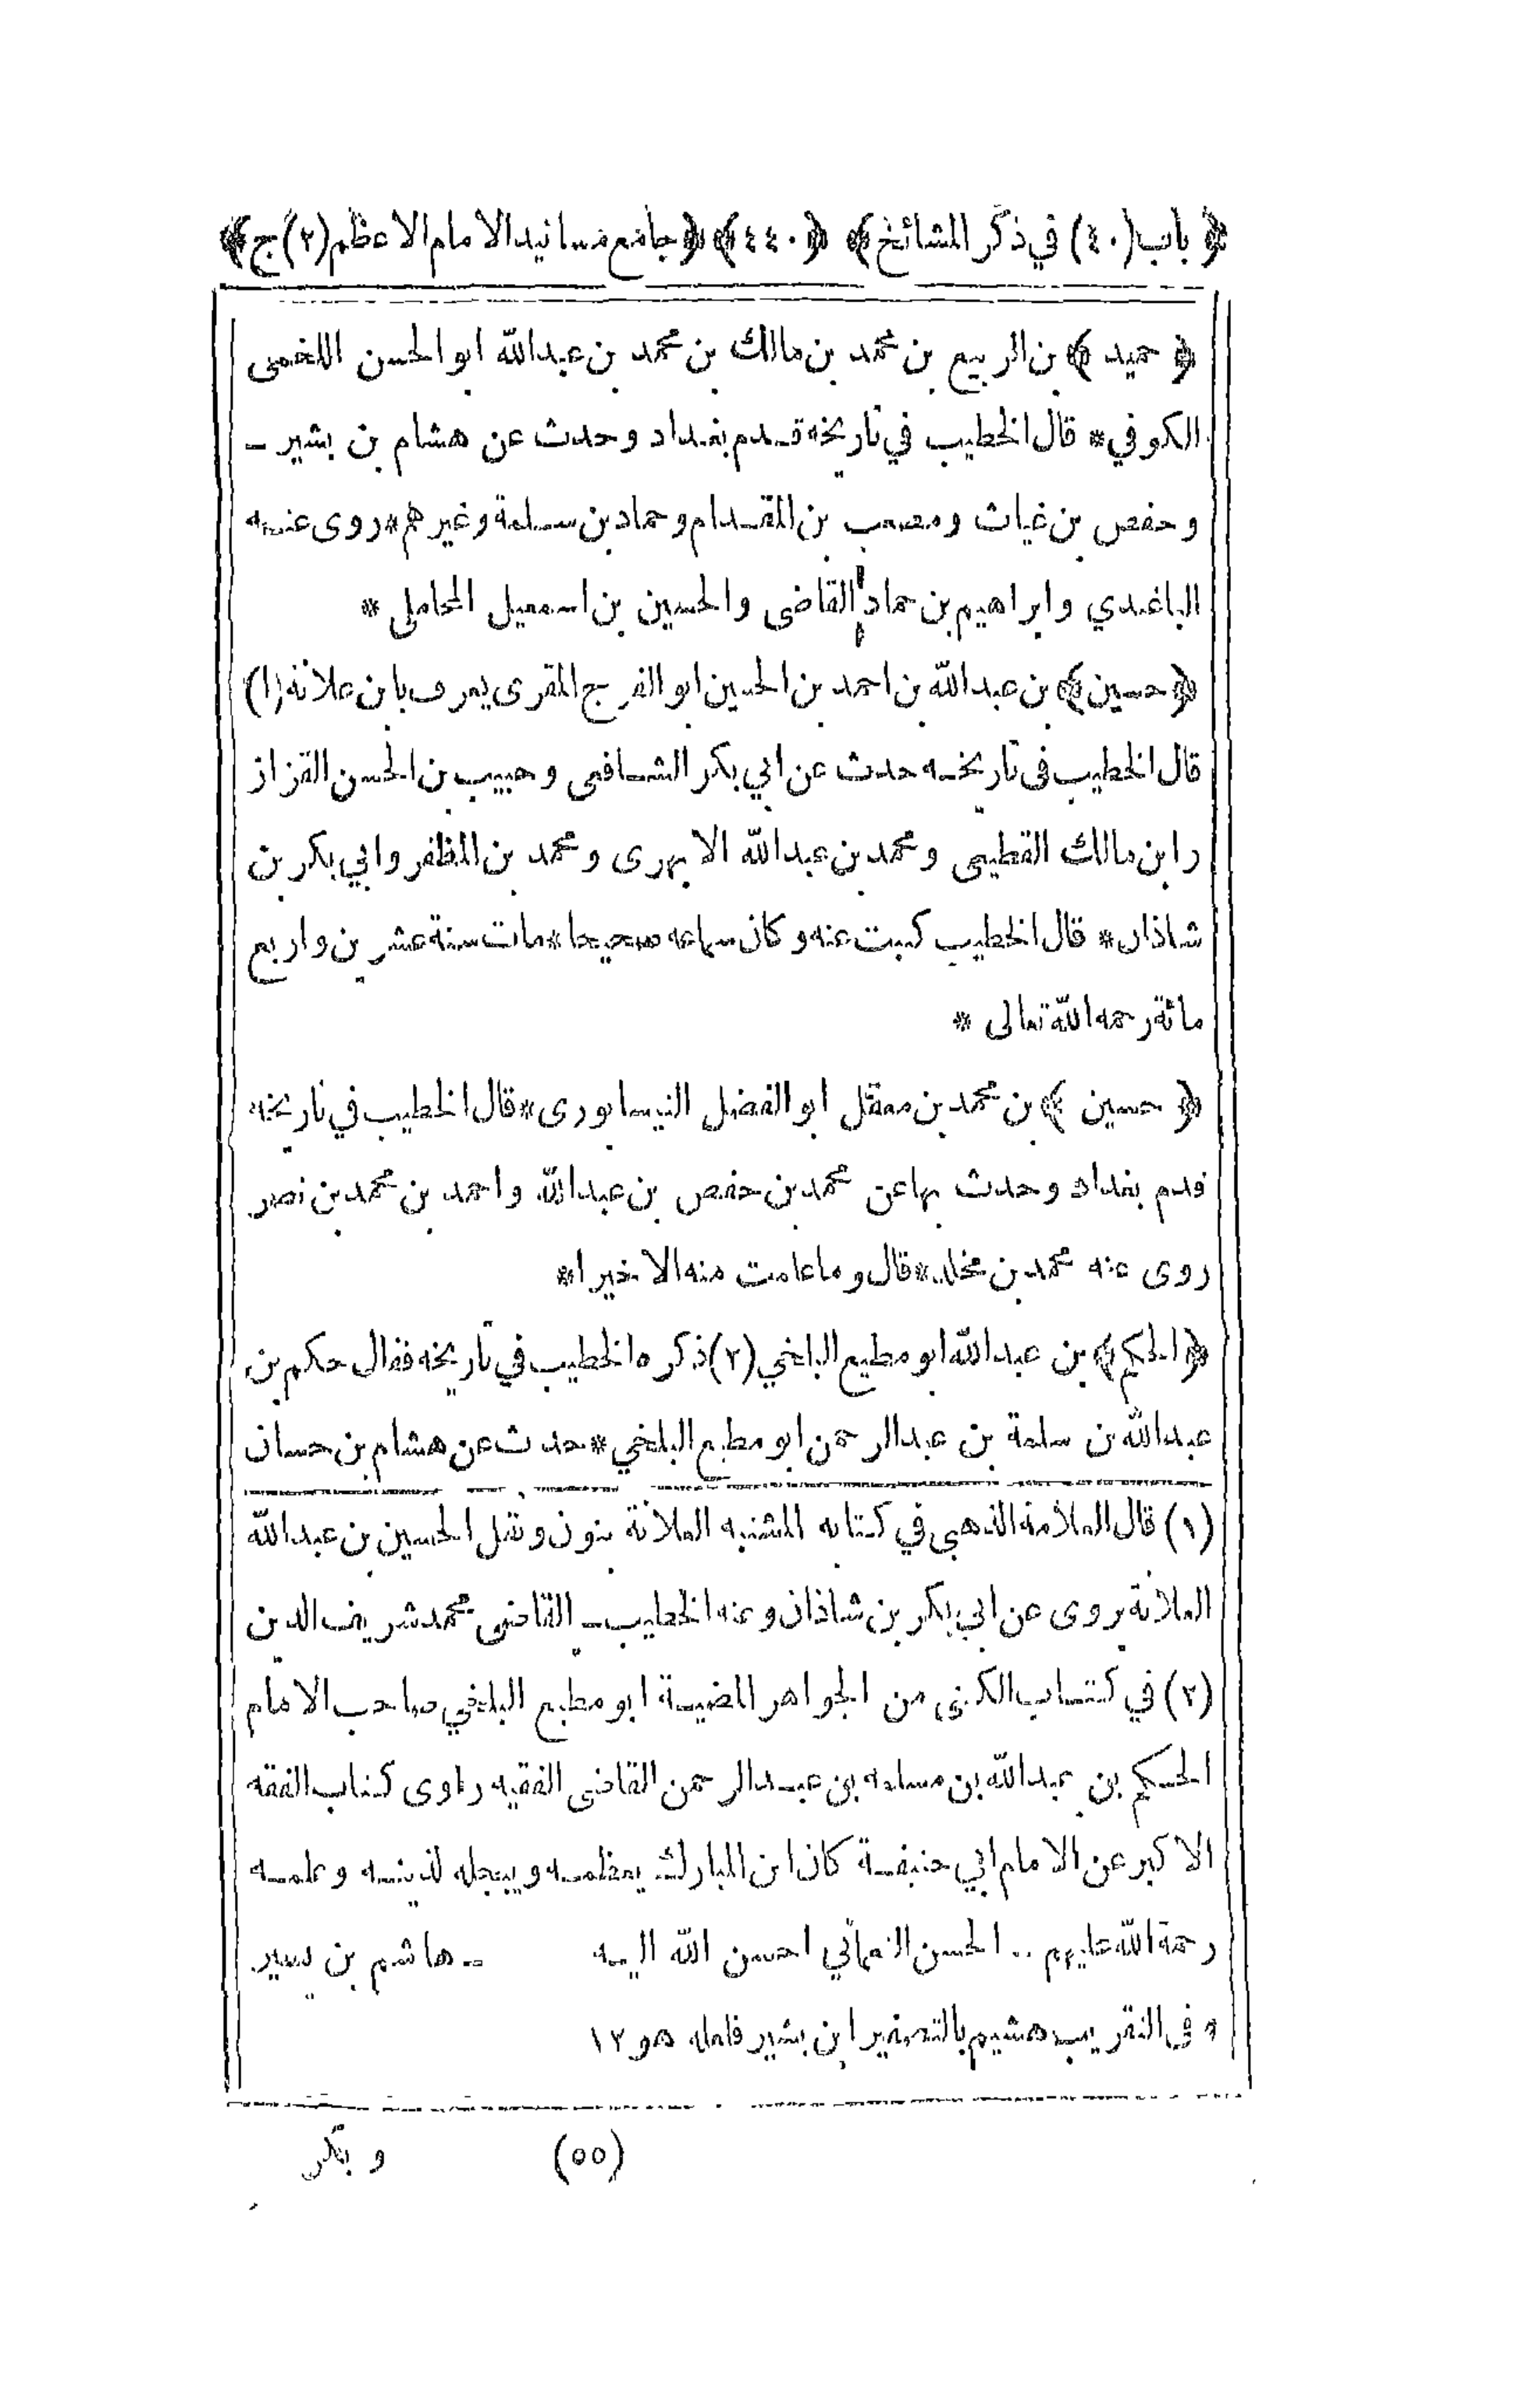 ﴿ باب (٤٠) في ذكر المشائخ ﴾ ﴿ ٤٤٠ ﴾ ﴿ جامع مسانيد الامام الاعظم (٢) ج ﴾
﴿ حميد ﴾ بن الربيع بن محمد بن مالك بن محمد بن عبدالله ابو الحسن اللخمى
الكوفي * قال الخطيب في تاريخه قدم بغداد وحدث عن هشام بن بشير ــ
وحفص بن غياث ومصعب بن المقدام وحماد بن سلمة وغيرهم * روى عنه
الباغندي وابراهيم بن حماد القاضى والحسين بن اسمعيل المحاملي *
﴿ حسين ﴾ بن عبدالله بن احمد بن الحسين ابو الفرج المقرى يعرف بابن علانة (١)
قال الخطيب فى تاريخه حدث عن ابي بكر الشافعى وحبيب بن الحسن القزاز
وابن مالك القطيعى ومحمد بن عبدالله الابهرى ومحمد بن المظفر وابي بكر بن
شاذان * قال الخطيب كتبت عنه وكان سماعه صحيحا * مات سنة عشرين واربع
مائة رحمه الله تعالى *
﴿ حسين ﴾ بن محمد بن معقل ابو الفضل النيسابورى * قال الخطيب في تاريخه
قدم بغداد وحدث بها عن محمد بن حفص بن عبدالله واحمد بن محمد بن نصر
روى عنه محمد بن مخلد * قال وما علمت منه الا خيرا *
﴿ الحكم ﴾ بن عبدالله ابو مطيع البلخي (٢) ذكره الخطيب في تاريخه فقال حكم بن
عبدالله بن سلمة بن عبدالرحمن ابو مطيع البلخي * حدث عن هشام بن حسان
(١) قال العلامة الذهبى في كتابه المشتبه العلانة بنون وثقل الحسين بن عبدالله
العلانة يروى عن ابي بكر بن شاذان وعنه الخطيب ــ القاضى محمد شريف الدين
(٢) في كتاب الكنى من الجواهر المضية ابو مطيع البلخي صاحب الامام
الحكم بن عبدالله بن مسلمه بن عبدالرحمن القاضى الفقيه راوى كتاب الفقه
الاكبر عن الامام ابي حنيفة كان ابن المبارك يعظمه ويبجله لدينه وعلمه
رحمة الله عليهم .. الحسن النعماني احسن الله اليه ــ هاشم بن بسير
فى التقريب هشيم بالتصغير ابن بشير فلعله هو ١٢
(٥٥) وبكر